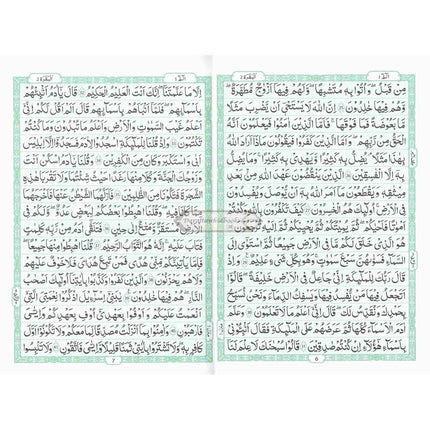 البقرة ٢
الٓمّٓ ١
مِنْ قَبْلُ وَاُتُوْا بِهٖ مُتَشَابِهًا وَلَهُمْ فِيْهَآ اَزْوَاجٌ مُّطَهَّرَةٌ
وَّهُمْ فِيْهَا خٰلِدُوْنَ اِنَّ اللّٰهَ لَا يَسْتَحْيٖٓ اَنْ يَّضْرِبَ مَثَلًا
مَّا بَعُوْضَةً فَمَا فَوْقَهَا فَاَمَّا الَّذِيْنَ اٰمَنُوْا فَيَعْلَمُوْنَ اَنَّهُ
الْحَقُّ مِنْ رَّبِّهِمْ وَاَمَّا الَّذِيْنَ كَفَرُوْا فَيَقُوْلُوْنَ مَاذَآ اَرَادَ اللّٰهُ
بِهٰذَا مَثَلًا يُضِلُّ بِهٖ كَثِيْرًا وَّيَهْدِيْ بِهٖ كَثِيْرًا وَمَا يُضِلُّ
بِهٖٓ اِلَّا الْفٰسِقِيْنَ الَّذِيْنَ يَنْقُضُوْنَ عَهْدَ اللّٰهِ مِنْ بَعْدِ
مِيْثَاقِهٖ وَيَقْطَعُوْنَ مَآ اَمَرَ اللّٰهُ بِهٖٓ اَنْ يُّوْصَلَ وَيُفْسِدُوْنَ
فِى الْاَرْضِ اُولٰٓئِكَ هُمُ الْخٰسِرُوْنَ كَيْفَ تَكْفُرُوْنَ بِاللّٰهِ وَكُنْتُمْ
اَمْوَاتًا فَاَحْيَاكُمْ ثُمَّ يُمِيْتُكُمْ ثُمَّ يُحْيِيْكُمْ ثُمَّ اِلَيْهِ تُرْجَعُوْنَ
هُوَ الَّذِيْ خَلَقَ لَكُمْ مَّا فِى الْاَرْضِ جَمِيْعًا ثُمَّ اسْتَوٰٓى اِلَى
السَّمَآءِ فَسَوّٰىهُنَّ سَبْعَ سَمٰوٰتٍ وَهُوَ بِكُلِّ شَيْءٍ عَلِيْمٌ وَاِذْ
قَالَ رَبُّكَ لِلْمَلٰٓئِكَةِ اِنِّيْ جَاعِلٌ فِى الْاَرْضِ خَلِيْفَةً قَالُوْٓا
اَتَجْعَلُ فِيْهَا مَنْ يُّفْسِدُ فِيْهَا وَيَسْفِكُ الدِّمَآءَ وَنَحْنُ نُسَبِّحُ
بِحَمْدِكَ وَنُقَدِّسُ لَكَ قَالَ اِنِّيْٓ اَعْلَمُ مَا لَا تَعْلَمُوْنَ وَعَلَّمَ
اٰدَمَ الْاَسْمَآءَ كُلَّهَا ثُمَّ عَرَضَهُمْ عَلَى الْمَلٰٓئِكَةِ فَقَالَ اَنْۢبِـُٔوْنِيْ
بِاَسْمَآءِ هٰٓؤُلَآءِ اِنْ كُنْتُمْ صٰدِقِيْنَ قَالُوْا سُبْحٰنَكَ لَا عِلْمَ لَنَآ
6
البقرة ٢
الٓمّٓ ١
اِلَّا مَا عَلَّمْتَنَا اِنَّكَ اَنْتَ الْعَلِيْمُ الْحَكِيْمُ قَالَ يٰٓاٰدَمُ اَنْۢبِئْهُمْ
بِاَسْمَآئِهِمْ فَلَمَّآ اَنْۢبَاَهُمْ بِاَسْمَآئِهِمْ قَالَ اَلَمْ اَقُلْ لَّكُمْ اِنِّيْٓ
اَعْلَمُ غَيْبَ السَّمٰوٰتِ وَالْاَرْضِ وَاَعْلَمُ مَا تُبْدُوْنَ وَمَا كُنْتُمْ
تَكْتُمُوْنَ وَاِذْ قُلْنَا لِلْمَلٰٓئِكَةِ اسْجُدُوْا لِاٰدَمَ فَسَجَدُوْٓا اِلَّآ اِبْلِيْسَ
اَبٰى وَاسْتَكْبَرَ وَكَانَ مِنَ الْكٰفِرِيْنَ وَقُلْنَا يٰٓاٰدَمُ اسْكُنْ اَنْتَ
وَزَوْجُكَ الْجَنَّةَ وَكُلَا مِنْهَا رَغَدًا حَيْثُ شِئْتُمَا وَلَا تَقْرَبَا هٰذِهِ
الشَّجَرَةَ فَتَكُوْنَا مِنَ الظّٰلِمِيْنَ فَاَزَلَّهُمَا الشَّيْطٰنُ عَنْهَا فَاَخْرَجَهُمَا
مِمَّا كَانَا فِيْهِ وَقُلْنَا اهْبِطُوْا بَعْضُكُمْ لِبَعْضٍ عَدُوٌّ وَلَكُمْ فِى
الْاَرْضِ مُسْتَقَرٌّ وَّمَتَاعٌ اِلٰى حِيْنٍ فَتَلَقّٰٓى اٰدَمُ مِنْ رَّبِّهٖ كَلِمٰتٍ
فَتَابَ عَلَيْهِ اِنَّهٗ هُوَ التَّوَّابُ الرَّحِيْمُ قُلْنَا اهْبِطُوْا مِنْهَا جَمِيْعًا
فَاِمَّا يَاْتِيَنَّكُمْ مِّنِّيْ هُدًى فَمَنْ تَبِعَ هُدَايَ فَلَا خَوْفٌ عَلَيْهِمْ
وَلَا هُمْ يَحْزَنُوْنَ وَالَّذِيْنَ كَفَرُوْا وَكَذَّبُوْا بِاٰيٰتِنَآ اُولٰٓئِكَ اَصْحٰبُ
النَّارِ هُمْ فِيْهَا خٰلِدُوْنَ يٰبَنِيْٓ اِسْرَآءِيْلَ اذْكُرُوْا نِعْمَتِيَ الَّتِيْٓ
اَنْعَمْتُ عَلَيْكُمْ وَاَوْفُوْا بِعَهْدِيْٓ اُوْفِ بِعَهْدِكُمْ وَاِيَّايَ
فَارْهَبُوْنِ وَاٰمِنُوْا بِمَآ اَنْزَلْتُ مُصَدِّقًا لِّمَا مَعَكُمْ وَلَا تَكُوْنُوْٓا اَوَّلَ
كَافِرٍۢ بِهٖ وَلَا تَشْتَرُوْا بِاٰيٰتِيْ ثَمَنًا قَلِيْلًا وَّاِيَّايَ فَاتَّقُوْنِ وَلَا تَلْبِسُوا
7